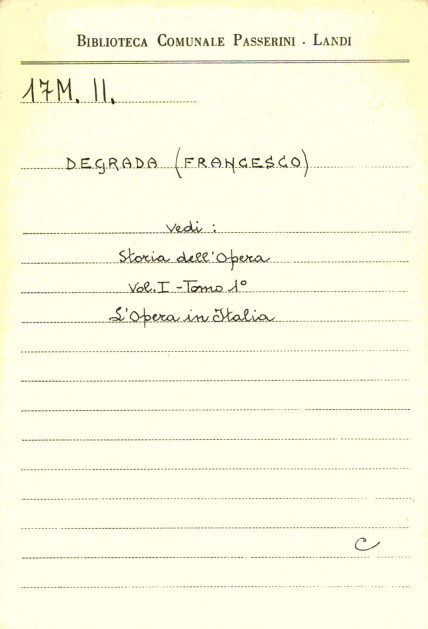 BIBLIOTECA COMUNALE PASSERINI - LANDI
17M. II.
DEGRADA (FRANCESCO)
Vedi :
Storia dell'Opera
Vol. I - Tomo 1°
L'Opera in Italia
C